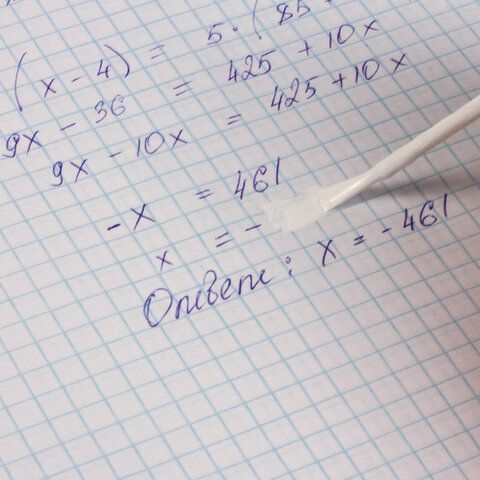 (x - 4) = 5·(85 +
9x - 36 = 425 + 10x
9x - 10x = 425 + 10x
-x = 461
x = -
Ответ: x = - 461